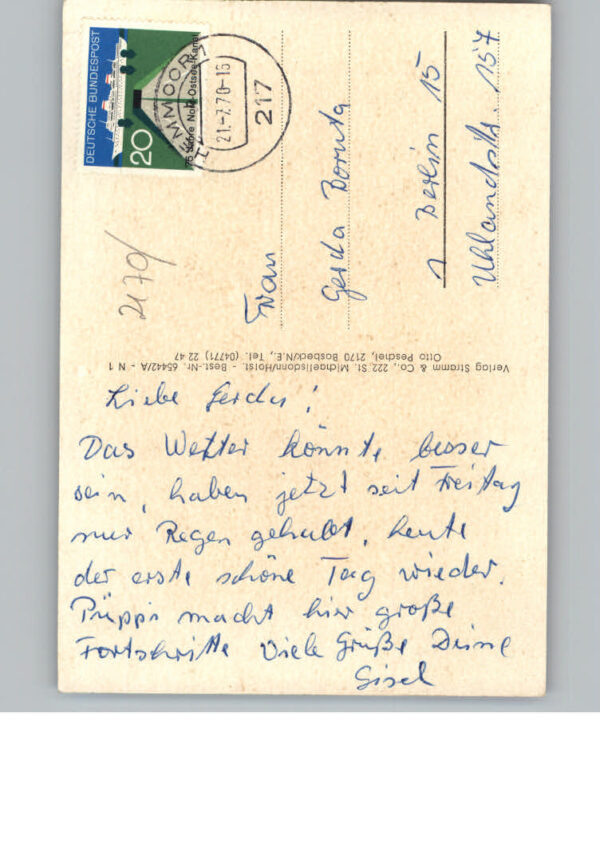 DEUTSCHE BUNDESPOST
20
75 Jahre Nord-Ostsee-Kanal
HEMMOOR 1
21.-7.70-16
217
2170/
Frau
Gerda Boruta
1 Berlin 15
Uhlandstr. 157
Verlag Stramm & Co., 222 St. Michaelisdonn/Holst. - Best.-Nr. 65442/A - N 1
Otto Peschel, 2170 Bosbeck/N.E., Tel. (04771) 22 47
Liebe Gerda!
Das Wetter könnte besser
sein, haben jetzt seit Freitag
nur Regen gehabt, heute
der erste schöne Tag wieder.
Püppi macht hier große
Fortschritte Viele Grüße Deine
Gisel